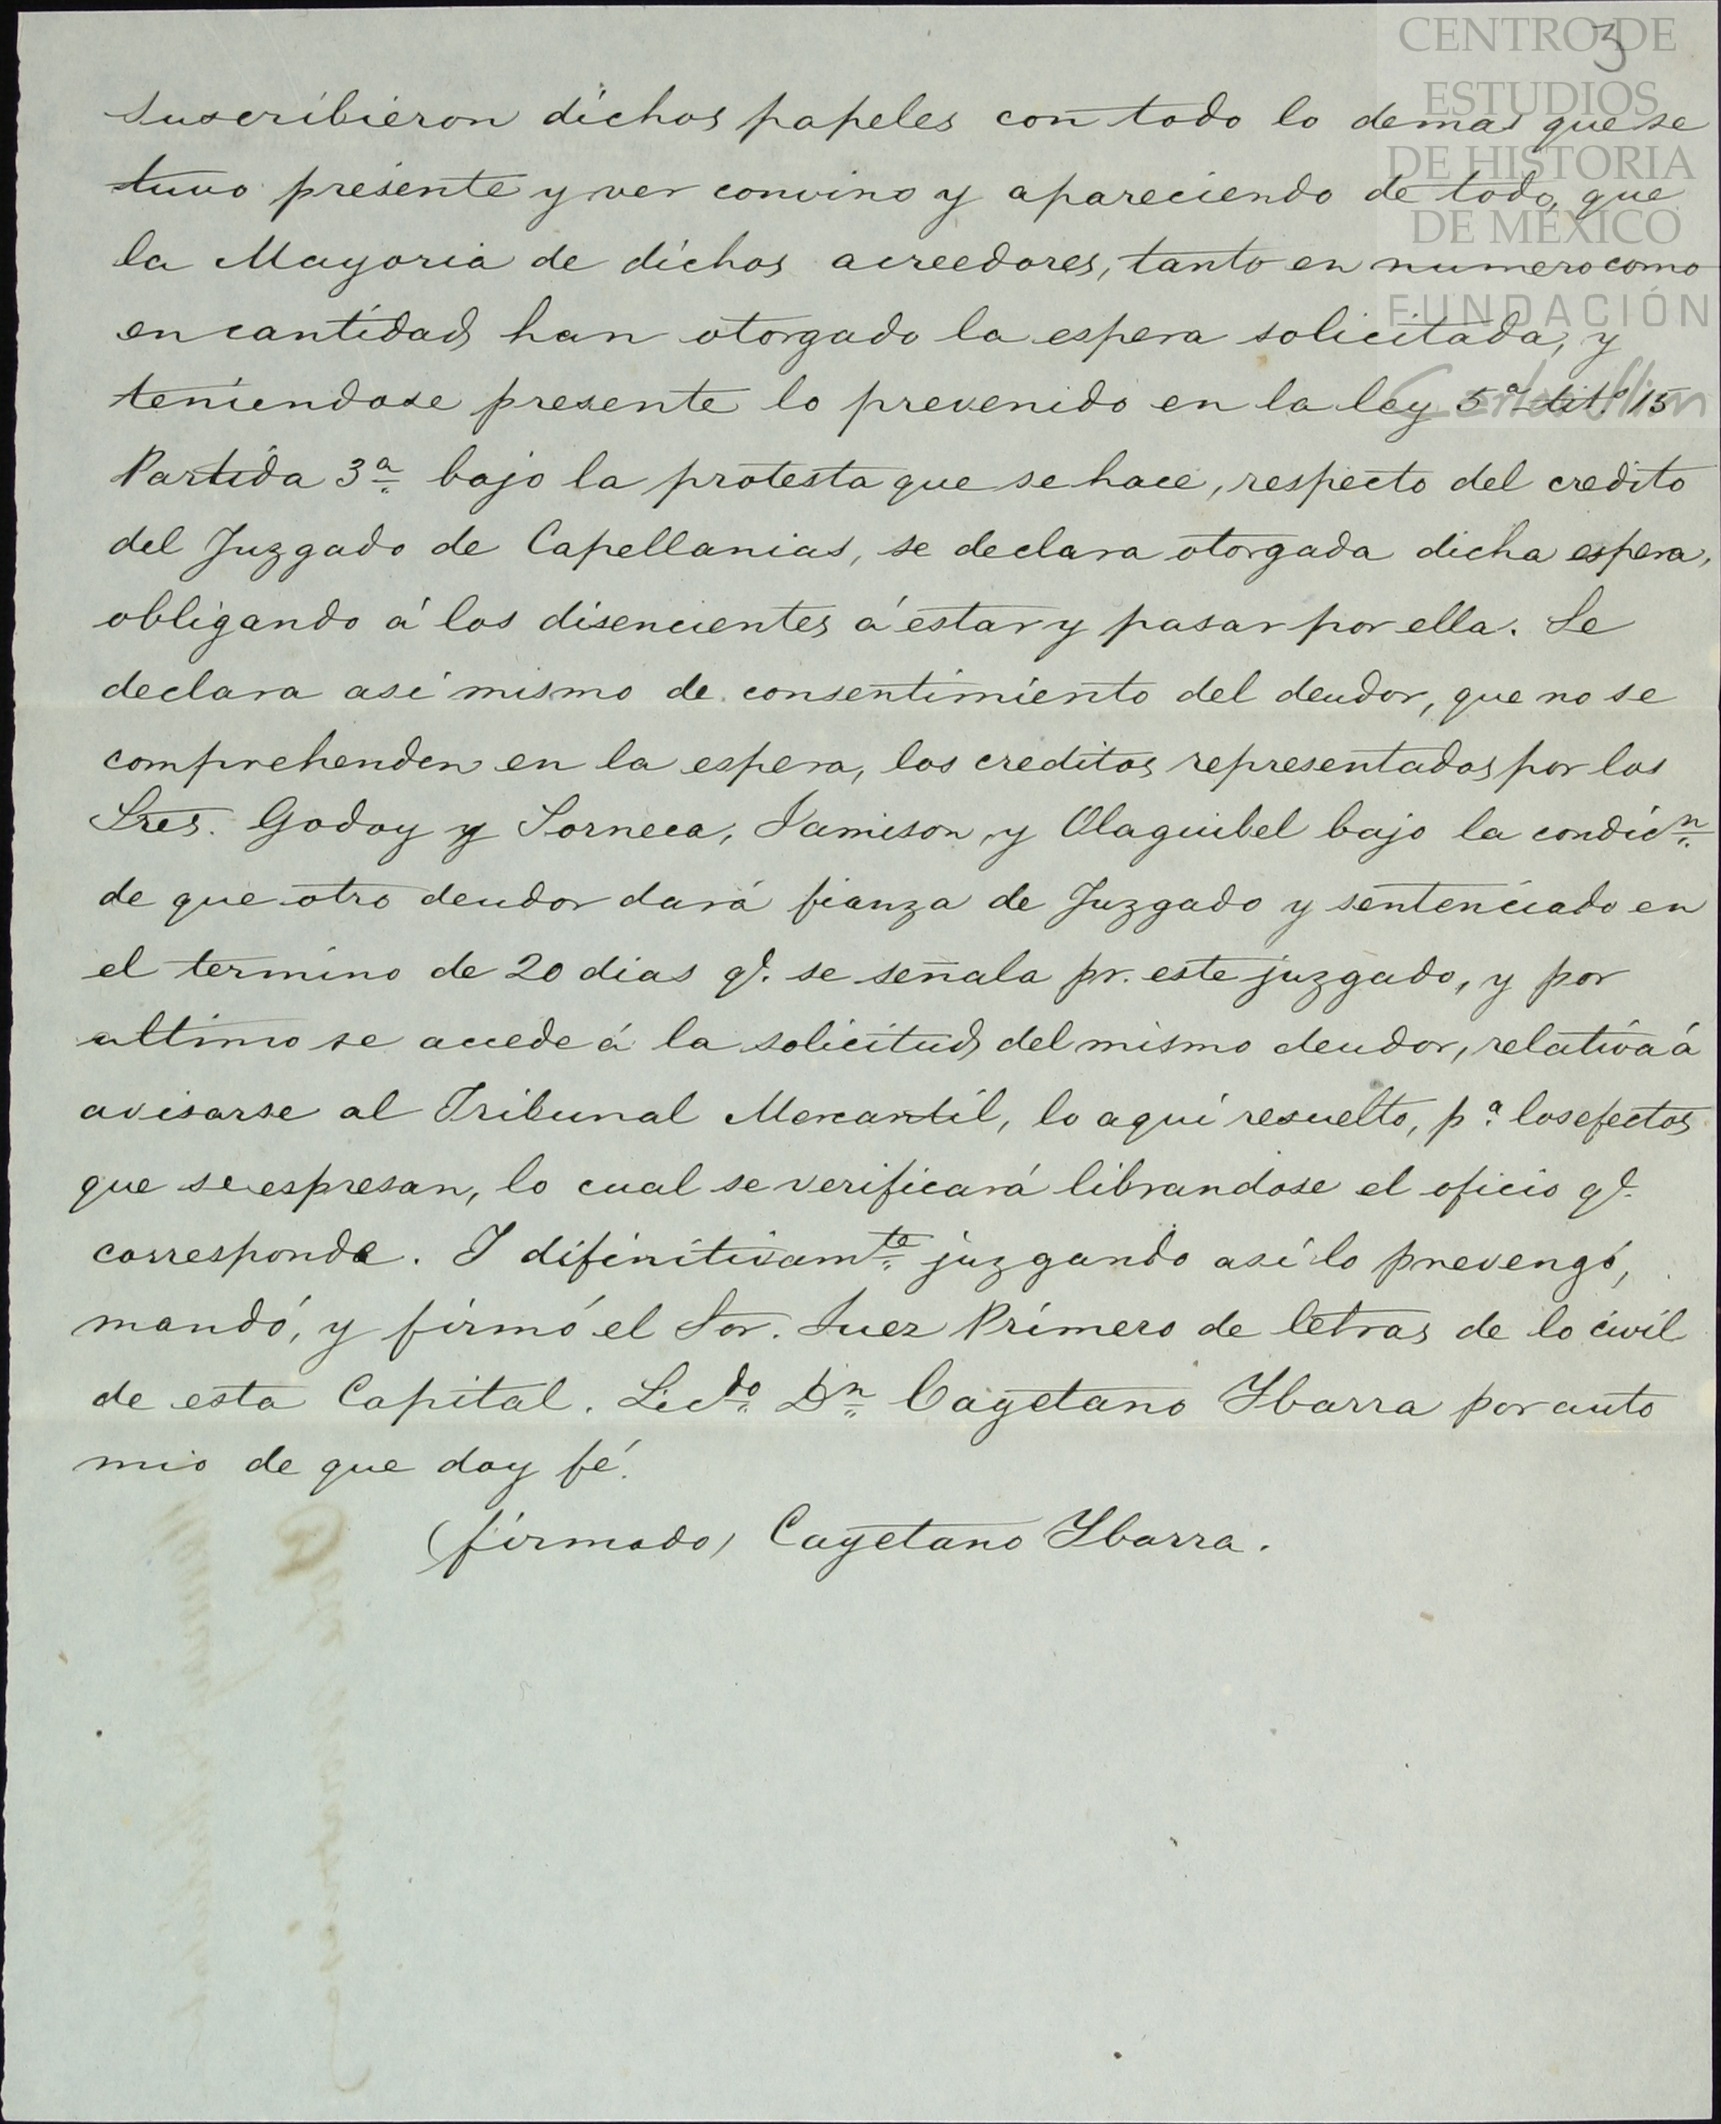 3
CENTRO DE
ESTUDIOS
DE HISTORIA
DE MÉXICO
FUNDACIÓN
Carlos Slim
suscribieron dichos papeles con todo lo demas que se
tuvo presente y ver convino y apareciendo de todo, que
la Mayoria de dichos acreedores, tanto en numero como
en cantidad han otorgado la espera solicitada, y
teniendose presente lo prevenido en la ley 5ª tit.º 15
Partida 3ª bajo la protesta que se hace, respecto del credito
del Juzgado de Capellanias, se declara otorgada dicha espera,
obligando á los disencientes á estar y pasar por ella. Se
declara asi mismo de consentimiento del deudor, que no se
comprehenden en la espera, los creditos representados por los
Sres. Godoy y Sorneca, Jamison, y Olaguibel bajo la condicn
de que otro deudor dará fianza de Juzgado y sentenciado en
el termino de 20 dias q.e se señala pr. este juzgado, y por
ultimo se accede á la solicitud del mismo deudor, relativa á
avisarse al Tribunal Mercantil, lo aqui resuelto, pª los efectos
que se espresan, lo cual se verificará librandose el oficio q.e
corresponde. I difinitivamte juzgando asi lo prevengó,
mandó, y firmó el Sor. Juez Primero de letras de lo civil
de esta Capital. Licdo Dn Cayetano Ybarra por auto
mio de que doy fé.
(firmado) Cayetano Ybarra.